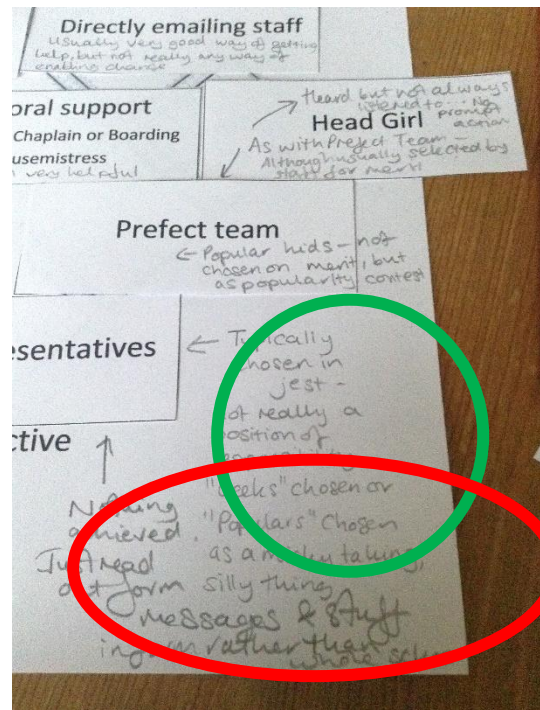 Directly emailing staff
Usually very good way of getting
help, but not really any way of
enabling change
oral support
Chaplain or Boarding
usemistress
very helpful
Heard but not always
listened to... No
prompt
action
Head Girl
As with Prefect Team -
Although usually selected by
staff for merit
Prefect team
← Popular kids - not
chosen on merit, but
as popularity contest
esentatives
← Typically
chosen in
jest -
not really a
position of
"Geeks" chosen or
"Populars" chosen
as a micky taking,
silly thing
ctive
Nothing
achieved.
Just read
out form
messages & stuff
in form rather than
whole